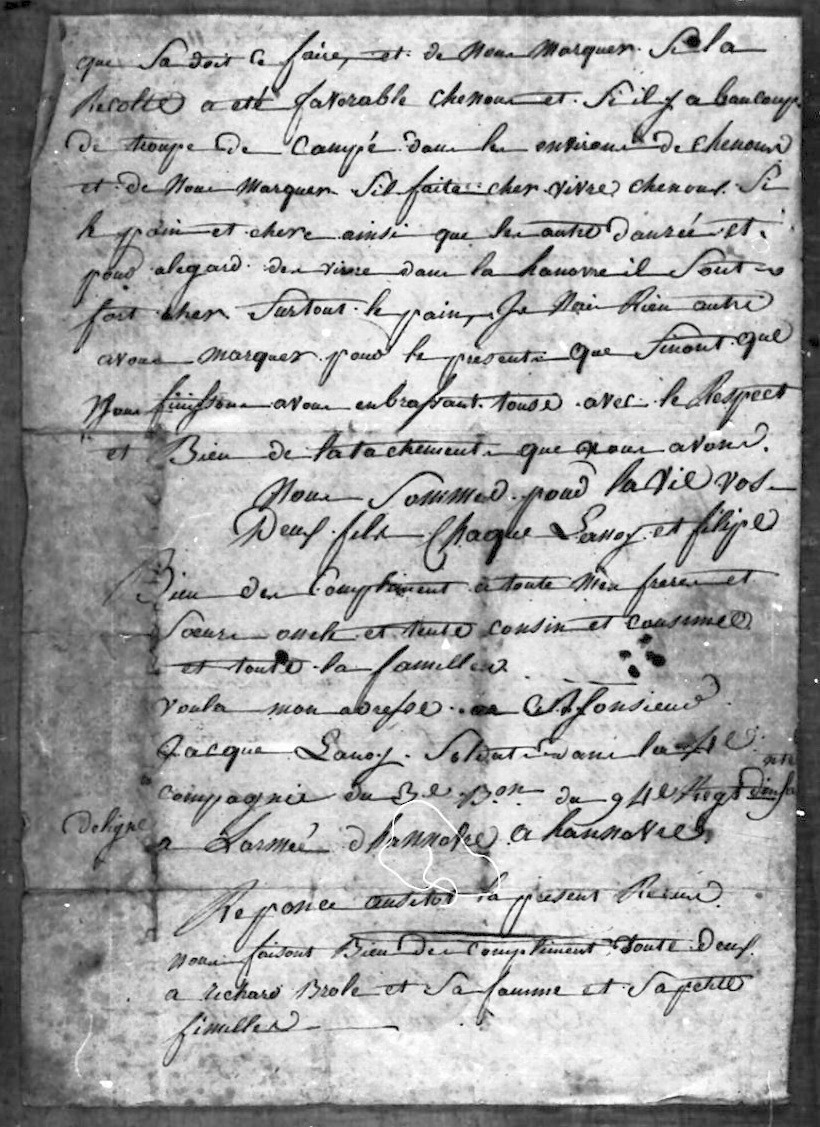 que Sa doit Ce faire, et de Nous Marquer Si la
Recolte a eté favorable chenous et Si il y a baucoup
de troupe de Campé dans les environs de chenous
et de Nous Marquer Sil faite cher vivre chenous Si
le pain et chere ainsi que les autre danrée et
pour alegard des vivre dans la hanovre il Sont
fort cher Surtout le pain, Je Nai Rien autre
avous marquer pour le present que Sinont que
Nous finissons avous enbrassant touse avec le Respect
et Bien de latachement que nous avons.
Nous Sommes pour la vie vos
Deux fils Chaque Lanoy et filipe
Bien des Compliment a toute Mes freres et
Soeurs oncle et tente cousin et cousinne
et toute la famille
voila mon adresse a Monsieur
Jacque Lanoy Soldat dans la 4e
compagnie du 3e Bon du 94e Regt dinfanterie
deligne
a Larmée dhannovre a hannovre
Reponce ausitot la present Recue
nous faisons Bien des compliment toute deux
a richard Brole et Sa famme et Sa petite
fimille